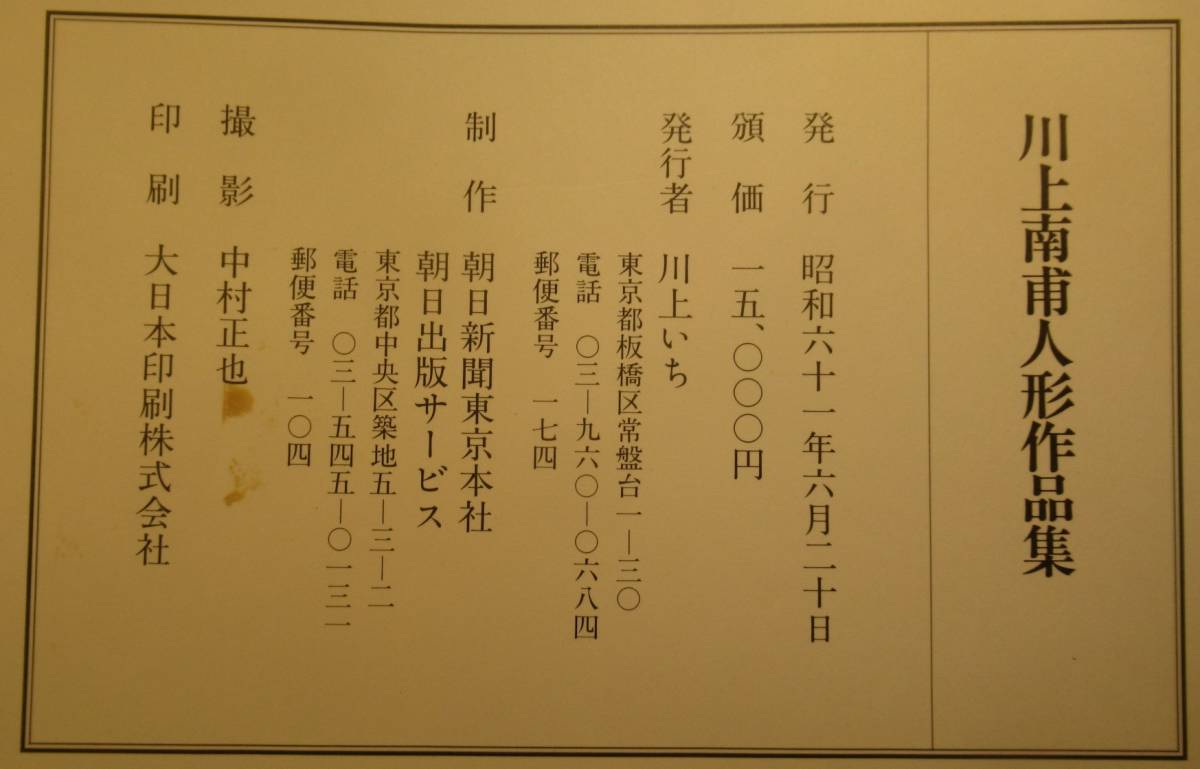 川上南甫人形作品集
発行 昭和六十一年六月二十日
頒価 一五、〇〇〇円
発行者 川上いち
東京都板橋区常盤台一―三〇
電話 〇三―九六〇―〇六八四
郵便番号 一七四
制作 朝日新聞東京本社
朝日出版サービス
東京都中央区築地五―三―二
電話 〇三―五四五―〇一三一
郵便番号 一〇四
撮影 中村正也
印刷 大日本印刷株式会社